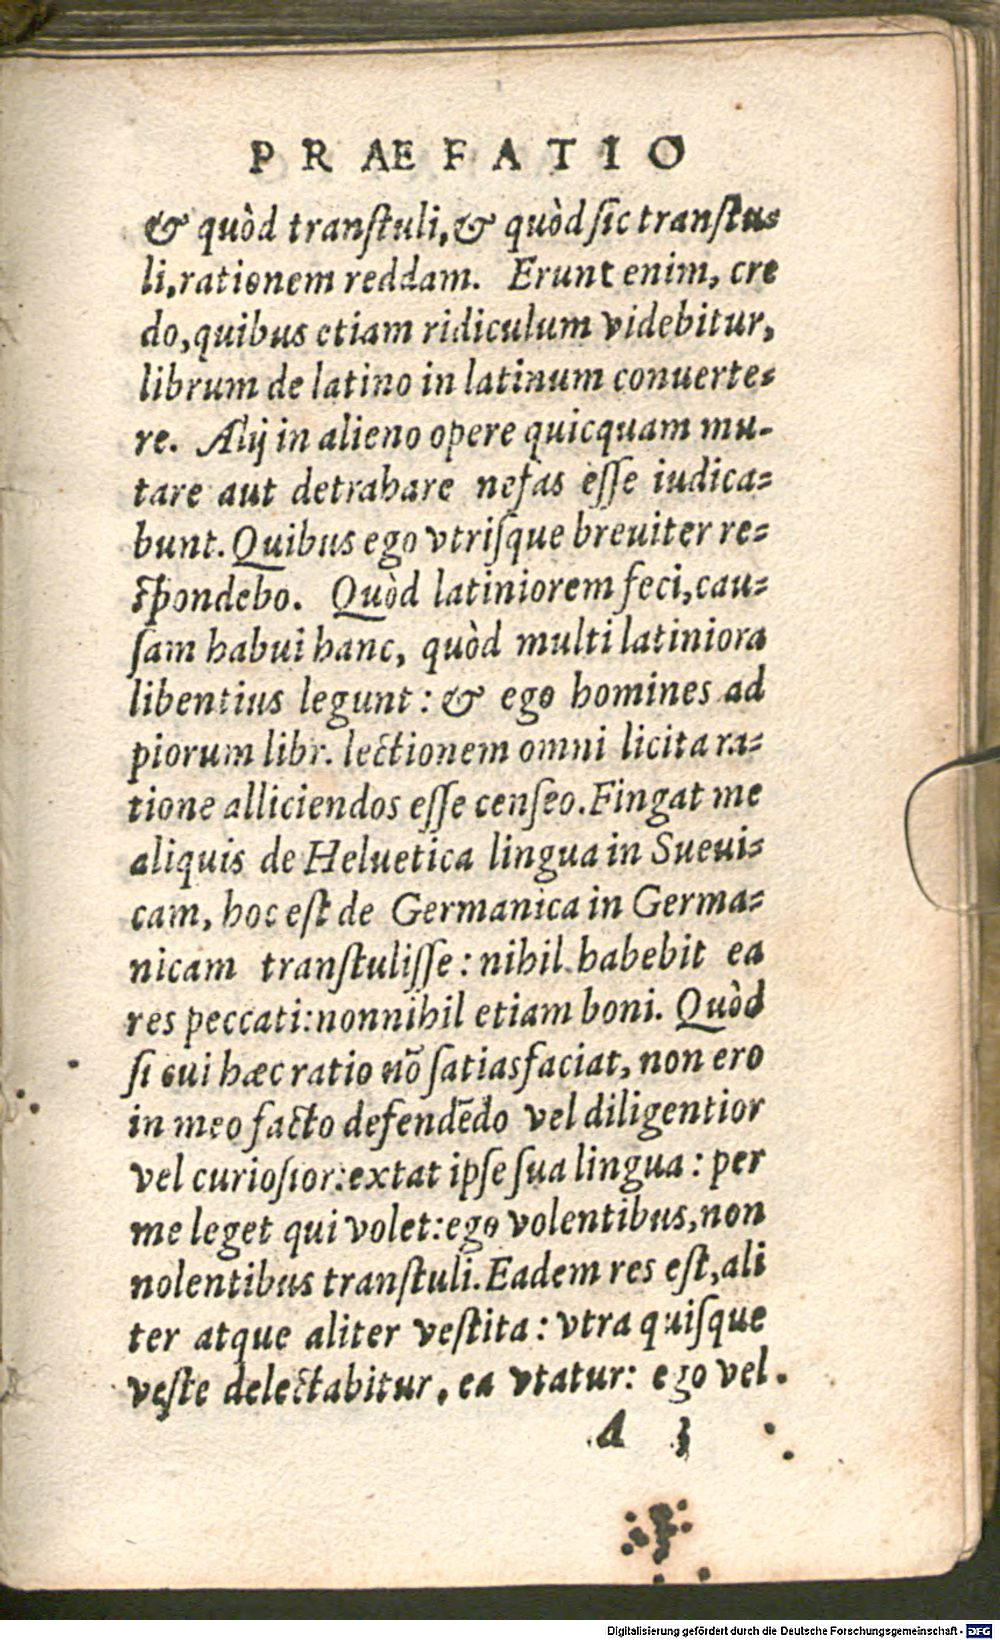 PRÆFATIO
& quòd tranſtuli, & quòd ſic tranſtu-
li, rationem reddam. Erunt enim, cre
do, quibus etiam ridiculum videbitur,
librum de latino in latinum conuerte-
re. Alij in alieno opere quicquam mu-
tare aut detrahare nefas eſſe iudica-
bunt. Quibus ego vtriſque breuiter re-
ſpondebo. Quòd latiniorem feci, cau-
ſam habui hanc, quòd multi latiniora
libentius legunt: & ego homines ad
piorum libr. lectionem omni licita ra-
tione alliciendos eſſe cenſeo. Fingat me
aliquis de Heluetica lingua in Sueui-
cam, hoc eſt de Germanica in Germa-
nicam tranſtuliſſe: nihil habebit ea
res peccati: nonnihil etiam boni. Quòd
ſi cui hæc ratio nõ ſatiasfaciat, non ero
in meo facto defendẽdo vel diligentior
vel curioſior: extat ipſe ſua lingua: per
me leget qui volet: ego volentibus, non
nolentibus tranſtuli. Eadem res eſt, ali
ter atque aliter veſtita: vtra quiſque
veſte delectabitur, ea vtatur: ego vel
A 3
Digitalisierung gefördert durch die Deutsche Forschungsgemeinschaft - DFG